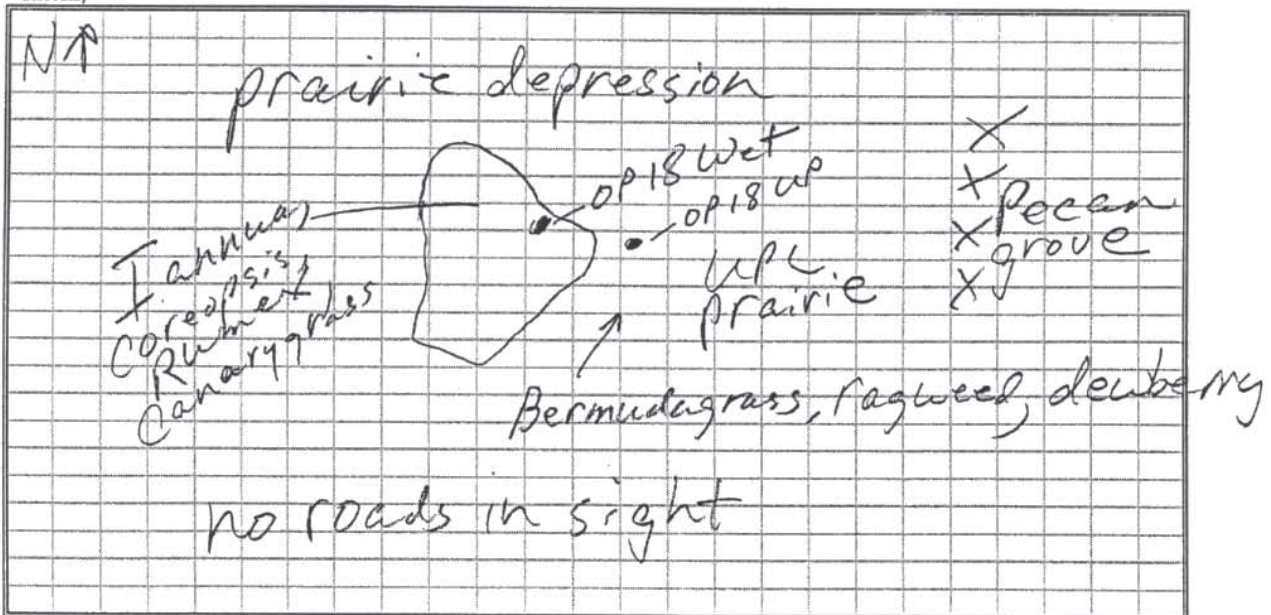 N↑
prairie depression
OP18 Wet
OP18 UP
I annua,
Coreopsis,
Rumex,
Canarygrass
UPL
prairie
X
X Pecan
X grove
X
Bermudagrass, ragweed, dewberry
no roads in sight